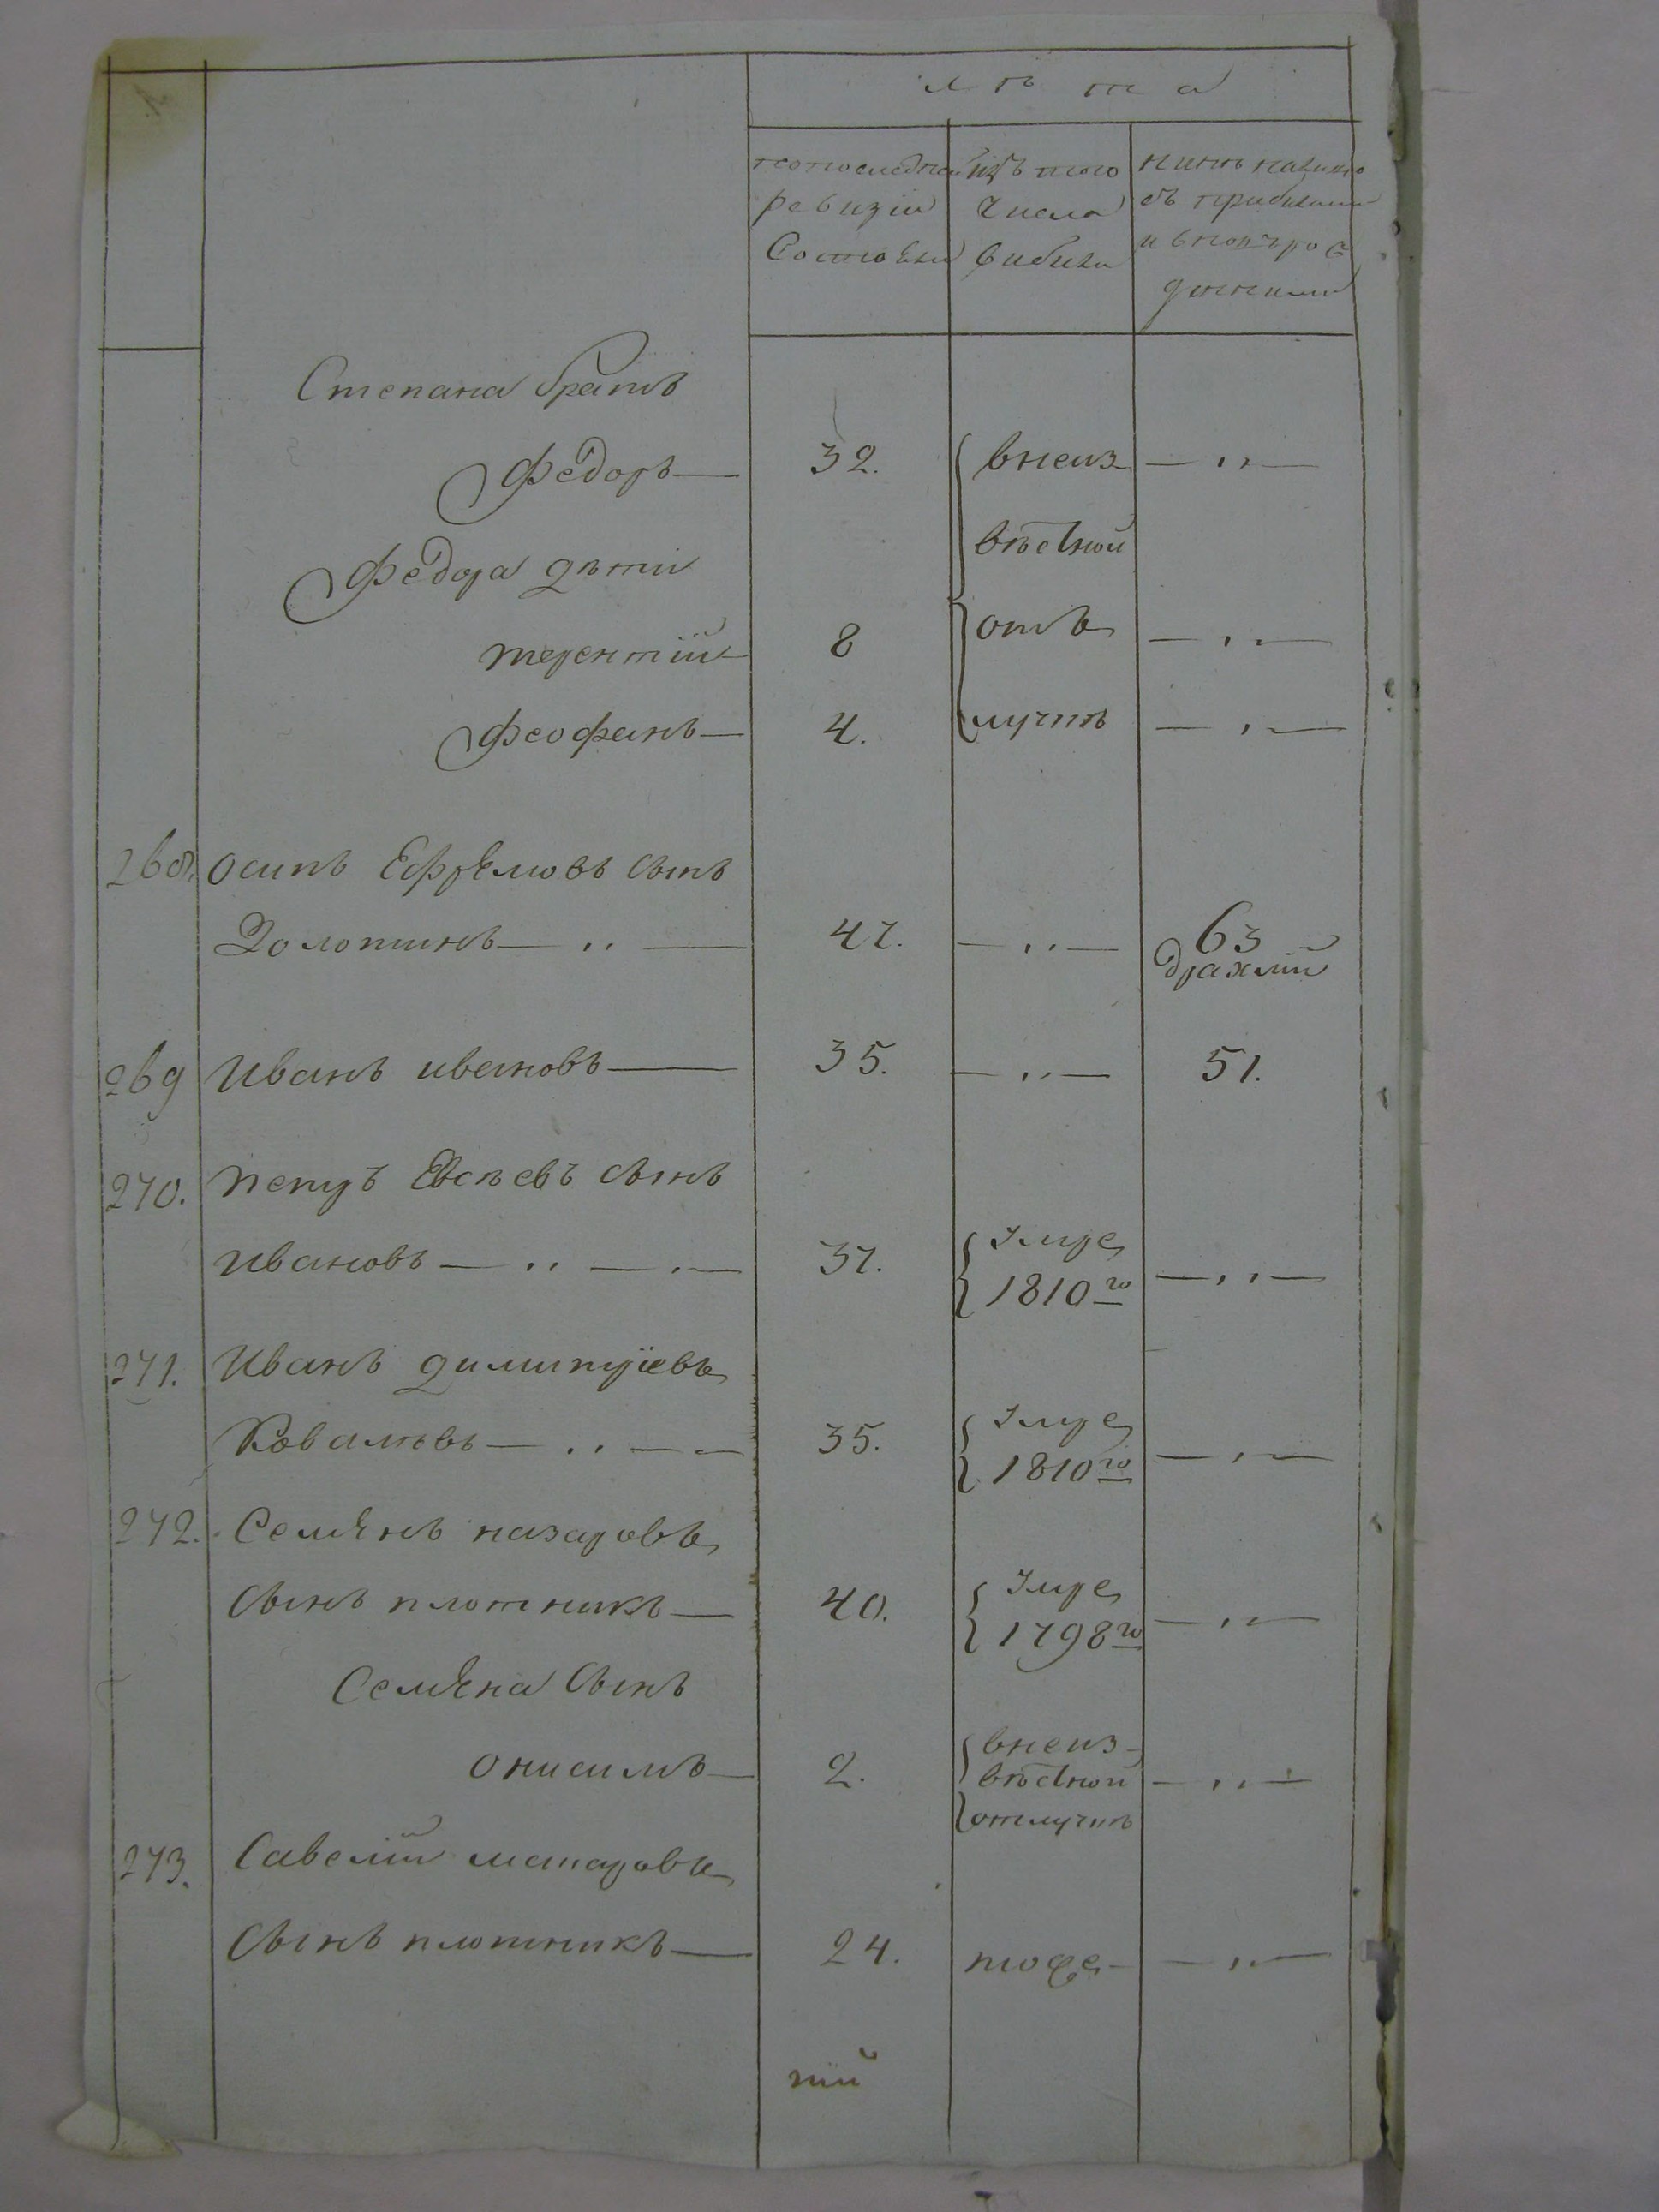 лѣта
попоследней ревизіи Состояли
изъ того Числа выбыли
нынѣ налицо съ прибылыми и вновь рожденными
Степана братъ
Федоръ — 32. внеиз — „ —
вѣстной
Федора дѣти
терентій — 8 отъ — „ —
Феофанъ — 4. лучкѣ — „ —
268. осипъ Ефремовъ сынъ
Золотинъ — „ — 47. — „ — 63
драхлій
269 Иванъ ивановъ — 35. — „ — 51.
270. петръ Евсѣевъ сынъ
ивановъ — „ — „ — 37. Умре 1810го — „ —
271. Иванъ димитріевъ
Ковалювъ — „ — 35. Умре 1810го — „ —
272. Семенъ назаровъ
Сынъ плотникъ — 40. Умре 1798го — „ —
Семена Сынъ
онисимъ — 2. внеизвѣстной отлучкѣ — „ —
273. Савелій макаровъ
Сынъ плотникъ — 24. тоже — „ —
тій